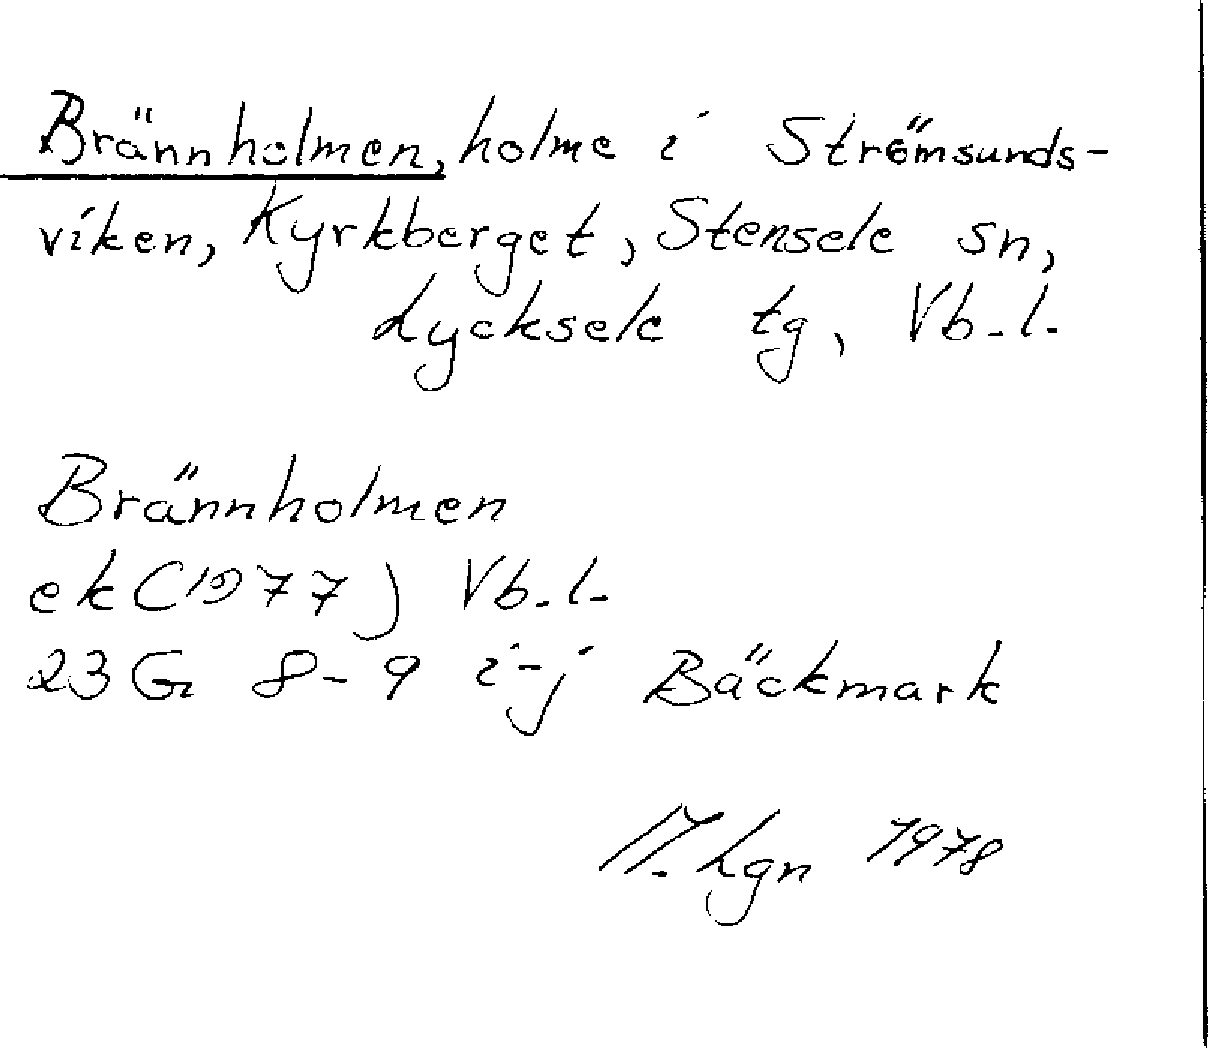 Brännholmen, holme i Strömsunds-
viken, Kyrkberget, Stensele sn,
Lycksele tg, Vb.l.
Brännholmen
ek (1977) Vb.l.
23 G 8-9 i-j Bäckmark
M. Lgn 1978